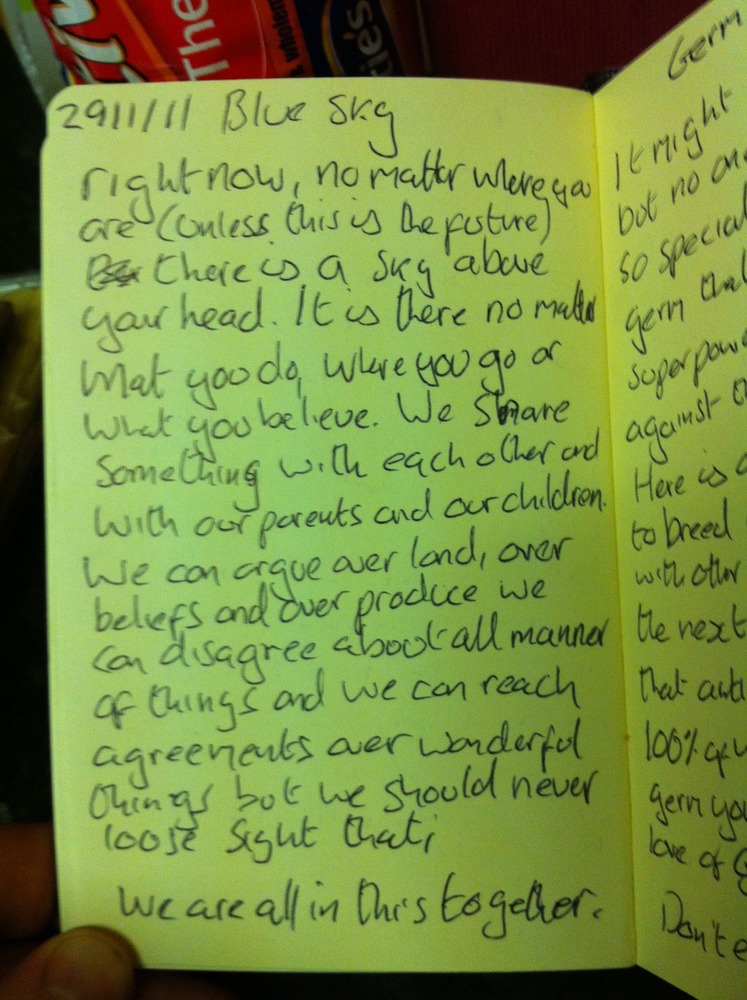 The
29/11/11 Blue Sky
right now, no matter where you
are (unless this is the future)
there is a sky above
your head. It is there no matter
what you do, where you go or
what you believe. We share
something with each other and
with our parents and our children.
We can argue over land, over
beliefs and over produce we
can disagree about all manner
of things and we can reach
agreements over wonderful
things but we should never
loose sight that;
We are all in this together.
Germ
It might
but no one
so special
germ that
superpow
against th
Here is a
to breed
with other
the next
that anti
100% of
germ you
love of G
Don't e